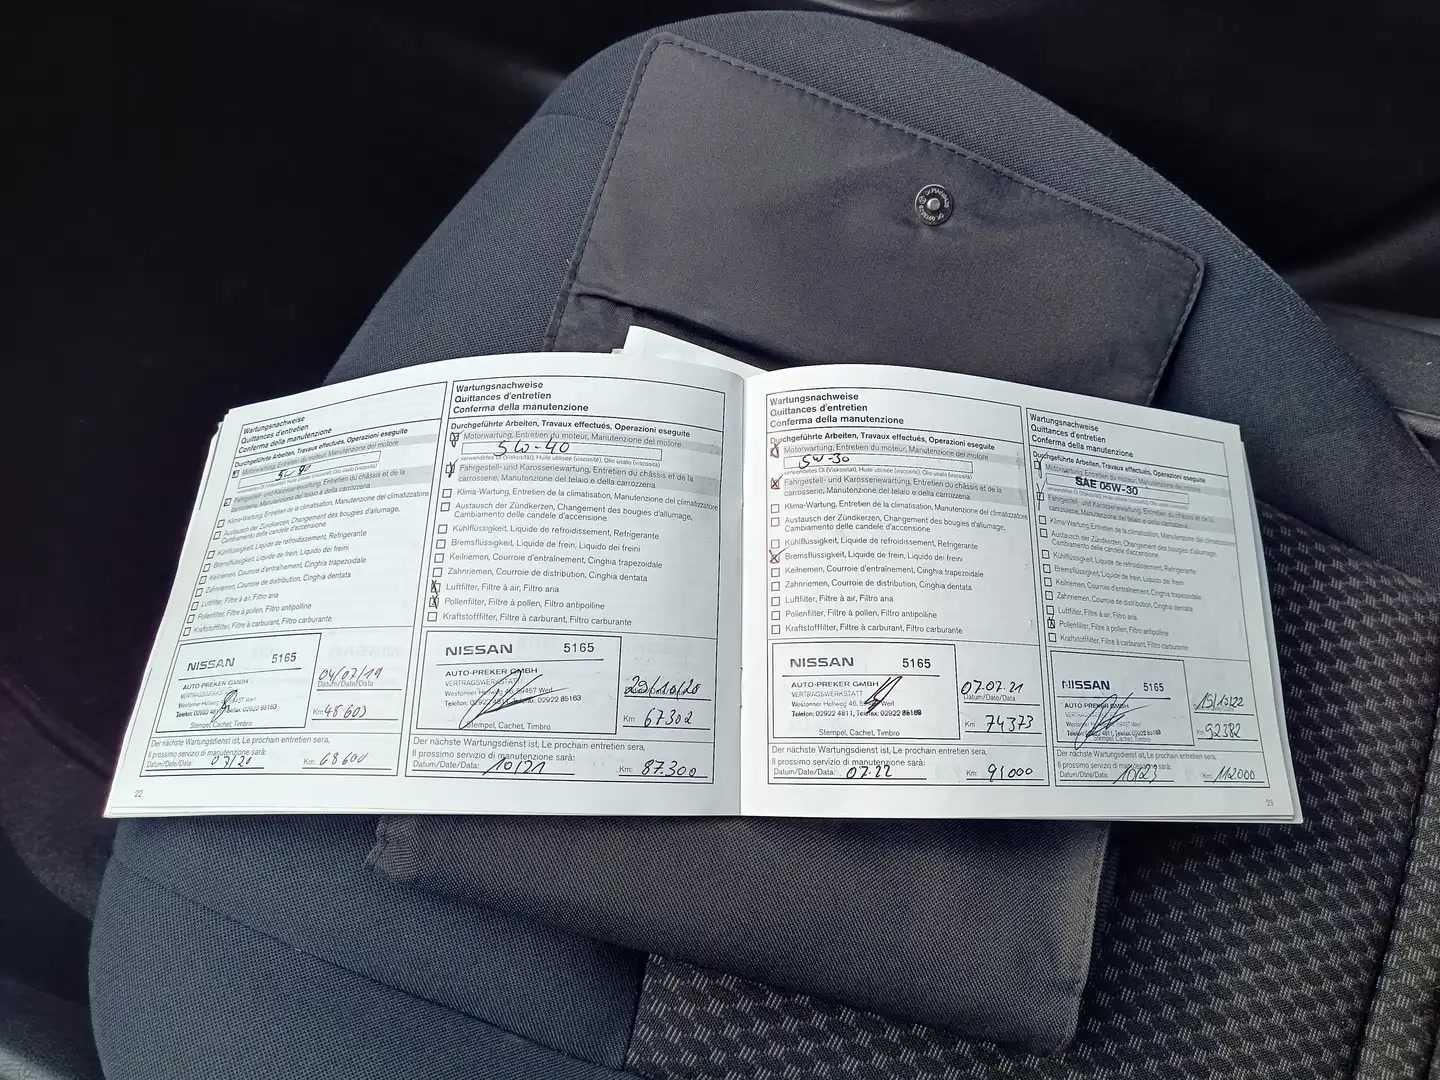 Wartungsnachweise
Quittances d'entretien
Conferma della manutenzione
Durchgeführte Arbeiten, Travaux effectués, Operazioni eseguite
Motorwartung, Entretien du moteur, Manutenzione del motore
5W-40
verwendetes Öl (Viskosität), Huile utilisée (viscosité), Olio usato (viscosità)
Fahrgestell- und Karosseriewartung, Entretien du châssis et de la
carrosserie, Manutenzione del telaio e della carrozzeria
Klima-Wartung, Entretien de la climatisation, Manutenzione del climatizzatore
Austausch der Zündkerzen, Changement des bougies d'allumage,
Cambiamento delle candele d'accensione
Kühlflüssigkeit, Liquide de refroidissement, Refrigerante
Bremsflüssigkeit, Liquide de frein, Liquido dei freini
Keilriemen, Courroie d'entraînement, Cinghia trapezoidale
Zahnriemen, Courroie de distribution, Cinghia dentata
Luftfilter, Filtre à air, Filtro aria
Pollenfilter, Filtre à pollen, Filtro antipolline
Kraftstofffilter, Filtre à carburant, Filtro carburante
NISSAN 5165
AUTO-PREKER GMBH
VERTRAGSWERKSTATT
Telefon: 02922 4811, Telefax: 02922 85163
Stempel, Cachet, Timbro
04/07/19
Datum/Date/Data
Km 48603
Der nächste Wartungsdienst ist, Le prochain entretien sera,
Il prossimo servizio di manutenzione sarà:
Datum/Date/Data: 07/20 Km: 68600
22
Wartungsnachweise
Quittances d'entretien
Conferma della manutenzione
Durchgeführte Arbeiten, Travaux effectués, Operazioni eseguite
Motorwartung, Entretien du moteur, Manutenzione del motore
5W-40
verwendetes Öl (Viskosität), Huile utilisée (viscosité), Olio usato (viscosità)
Fahrgestell- und Karosseriewartung, Entretien du châssis et de la
carrosserie, Manutenzione del telaio e della carrozzeria
Klima-Wartung, Entretien de la climatisation, Manutenzione del climatizzatore
Austausch der Zündkerzen, Changement des bougies d'allumage,
Cambiamento delle candele d'accensione
Kühlflüssigkeit, Liquide de refroidissement, Refrigerante
Bremsflüssigkeit, Liquide de frein, Liquido dei freini
Keilriemen, Courroie d'entraînement, Cinghia trapezoidale
Zahnriemen, Courroie de distribution, Cinghia dentata
Luftfilter, Filtre à air, Filtro aria
Pollenfilter, Filtre à pollen, Filtro antipolline
Kraftstofffilter, Filtre à carburant, Filtro carburante
NISSAN 5165
AUTO-PREKER GMBH
VERTRAGSWERKSTATT
Westonner Hellweg 46, 59457 Werl
Telefon: 02922 4811, Telefax: 02922 85163
Stempel, Cachet, Timbro
29/10/20
Km 67302
Der nächste Wartungsdienst ist, Le prochain entretien sera,
Il prossimo servizio di manutenzione sarà:
Datum/Date/Data: 10/21 Km: 87.300
Wartungsnachweise
Quittances d'entretien
Conferma della manutenzione
Durchgeführte Arbeiten, Travaux effectués, Operazioni eseguite
Motorwartung, Entretien du moteur, Manutenzione del motore
5W-30
verwendetes Öl (Viskosität), Huile utilisée (viscosité), Olio usato (viscosità)
Fahrgestell- und Karosseriewartung, Entretien du châssis et de la
carrosserie, Manutenzione del telaio e della carrozzeria
Klima-Wartung, Entretien de la climatisation, Manutenzione del climatizzatore
Austausch der Zündkerzen, Changement des bougies d'allumage,
Cambiamento delle candele d'accensione
Kühlflüssigkeit, Liquide de refroidissement, Refrigerante
Bremsflüssigkeit, Liquide de frein, Liquido dei freini
Keilriemen, Courroie d'entraînement, Cinghia trapezoidale
Zahnriemen, Courroie de distribution, Cinghia dentata
Luftfilter, Filtre à air, Filtro aria
Pollenfilter, Filtre à pollen, Filtro antipolline
Kraftstofffilter, Filtre à carburant, Filtro carburante
NISSAN 5165
AUTO-PREKER GMBH
VERTRAGSWERKSTATT
Westonner Hellweg 46, Werl
Telefon: 02922 4811, Telefax: 02922 85163
Stempel, Cachet, Timbro
07.07.21
Datum/Date/Data
Km 74373
Der nächste Wartungsdienst ist, Le prochain entretien sera,
Il prossimo servizio di manutenzione sarà:
Datum/Date/Data: 07.22 Km: 91000
Wartungsnachweise
Quittances d'entretien
Conferma della manutenzione
Durchgeführte Arbeiten, Travaux effectués, Operazioni eseguite
Motorwartung, Entretien du moteur, Manutenzione del motore
SAE 05W-30
verwendetes Öl (Viskosität), Huile utilisée (viscosité), Olio usato (viscosità)
Fahrgestell- und Karosseriewartung, Entretien du châssis et de la
carrosserie, Manutenzione del telaio e della carrozzeria
Klima-Wartung, Entretien de la climatisation, Manutenzione del climatizzatore
Austausch der Zündkerzen, Changement des bougies d'allumage,
Cambiamento delle candele d'accensione
Kühlflüssigkeit, Liquide de refroidissement, Refrigerante
Bremsflüssigkeit, Liquide de frein, Liquido dei freini
Keilriemen, Courroie d'entraînement, Cinghia trapezoidale
Zahnriemen, Courroie de distribution, Cinghia dentata
Luftfilter, Filtre à air, Filtro aria
Pollenfilter, Filtre à pollen, Filtro antipolline
Kraftstofffilter, Filtre à carburant, Filtro carburante
NISSAN 5165
AUTO-PREKER GMBH
Telefon: 02922 4811, Telefax: 02922 85163
Stempel, Cachet, Timbro
Datum/Date/Data
Km 92382
Der nächste Wartungsdienst ist, Le prochain entretien sera,
Il prossimo servizio di manutenzione sarà:
Datum/Date/Data: 10/23 Km: 112000
23